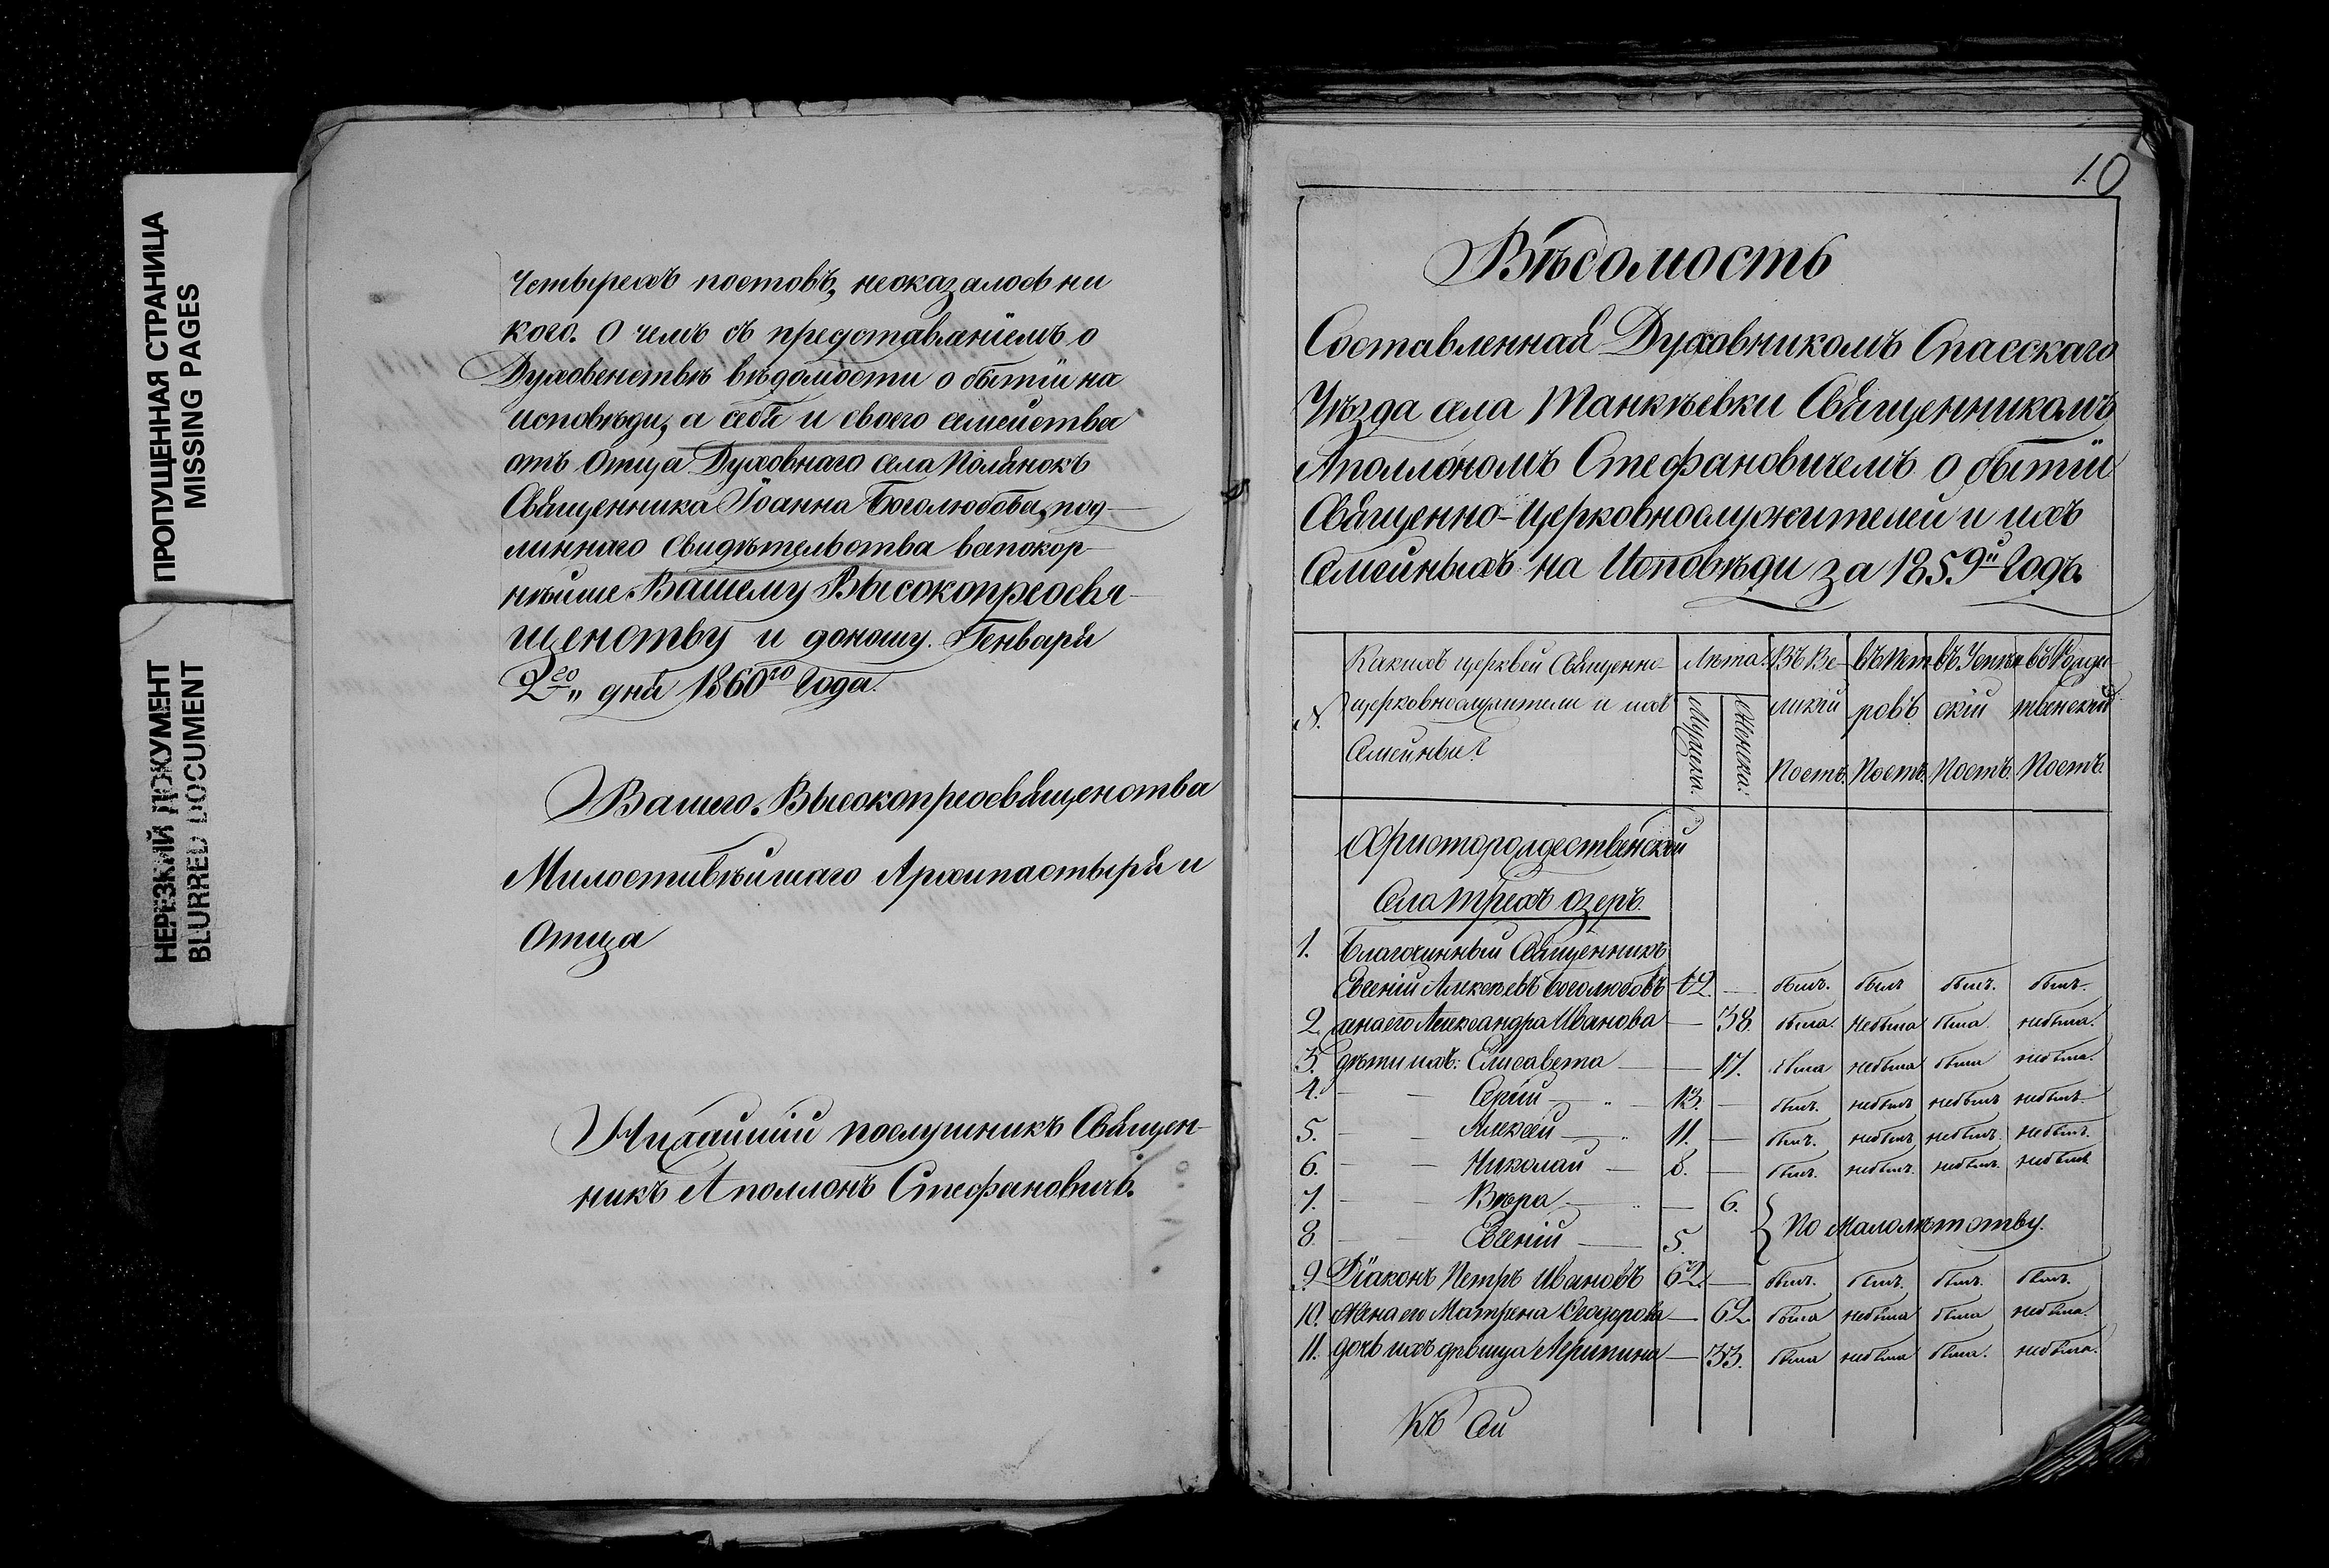 ПРОПУЩЕННАЯ СТРАНИЦА
MISSING PAGES
НЕРЕЗКИЙ ДОКУМЕНТ
BLURRED DOCUMENT
Четырехъ постовъ, неоказалось ни
кого. О чемъ съ представленіемъ о
Духовенствѣ вѣдомости о бытіи на
исповѣди, а себя и своего семейства
отъ Отца Духовнаго села Полянокъ
Священника Іоанна Боголюбова, под-
линнаго свидѣтельства всепокор-
нѣйше Вашему Высокопреосвя-
щенству и доношу. Генваря
2го„ дня 1860го Года.
Вашего Высокопреосвященства
Милостивѣйшаго Архипастыря и
Отца
Нижайшій послушникъ Священ-
никъ Аполлонъ Стефановичь.
10
Вѣдомость
Составленная Духовникомъ Спасскаго
Уѣзда села Танкѣевки Священникомъ
Аполлономъ Стефановичемъ о бытіи
Священно-Церковнослужителей и ихъ
Семейныхъ на Исповѣди за 1859й Годъ.
Какихъ церквей Священно- Лѣта. Въ Ве- въ Пет въ Успен въ Рожде
№. церковнослужители и ихъ Мужска. Женска: ликій ровъ скій твенскій
Семейные? Постъ. Постъ. Постъ. Постъ.
Христорождественской
Села Трехъ озеръ.
1. Благочинный Священникъ
Евгеній Алексѣевъ Боголюбовъ 42. — былъ. былъ былъ. былъ.
2. жена его Александра Иванова — 38. была. небыла была. небыла.
3. дѣти ихъ: Елисавета — 17. была небыла была небыла.
4. — — Сергій — 13. — былъ. небылъ небылъ небылъ.
5. — — Алексѣй — 11. — былъ. небылъ небылъ. небылъ.
6. — — Николай — 8. — былъ. небылъ. небылъ. небылъ
7. — — Вѣра — — 6.
8. — — Евгеній — 5. } По Малолѣтству.
9. Діаконъ Петръ Ивановъ 62. — былъ. былъ. былъ. былъ.
10. Жена его Матрена Ѳеодорова — 62. была небыла была небыла.
11. дочь ихъ дѣвица Агрипина — 33. была небыла была. небыла.
Къ сей